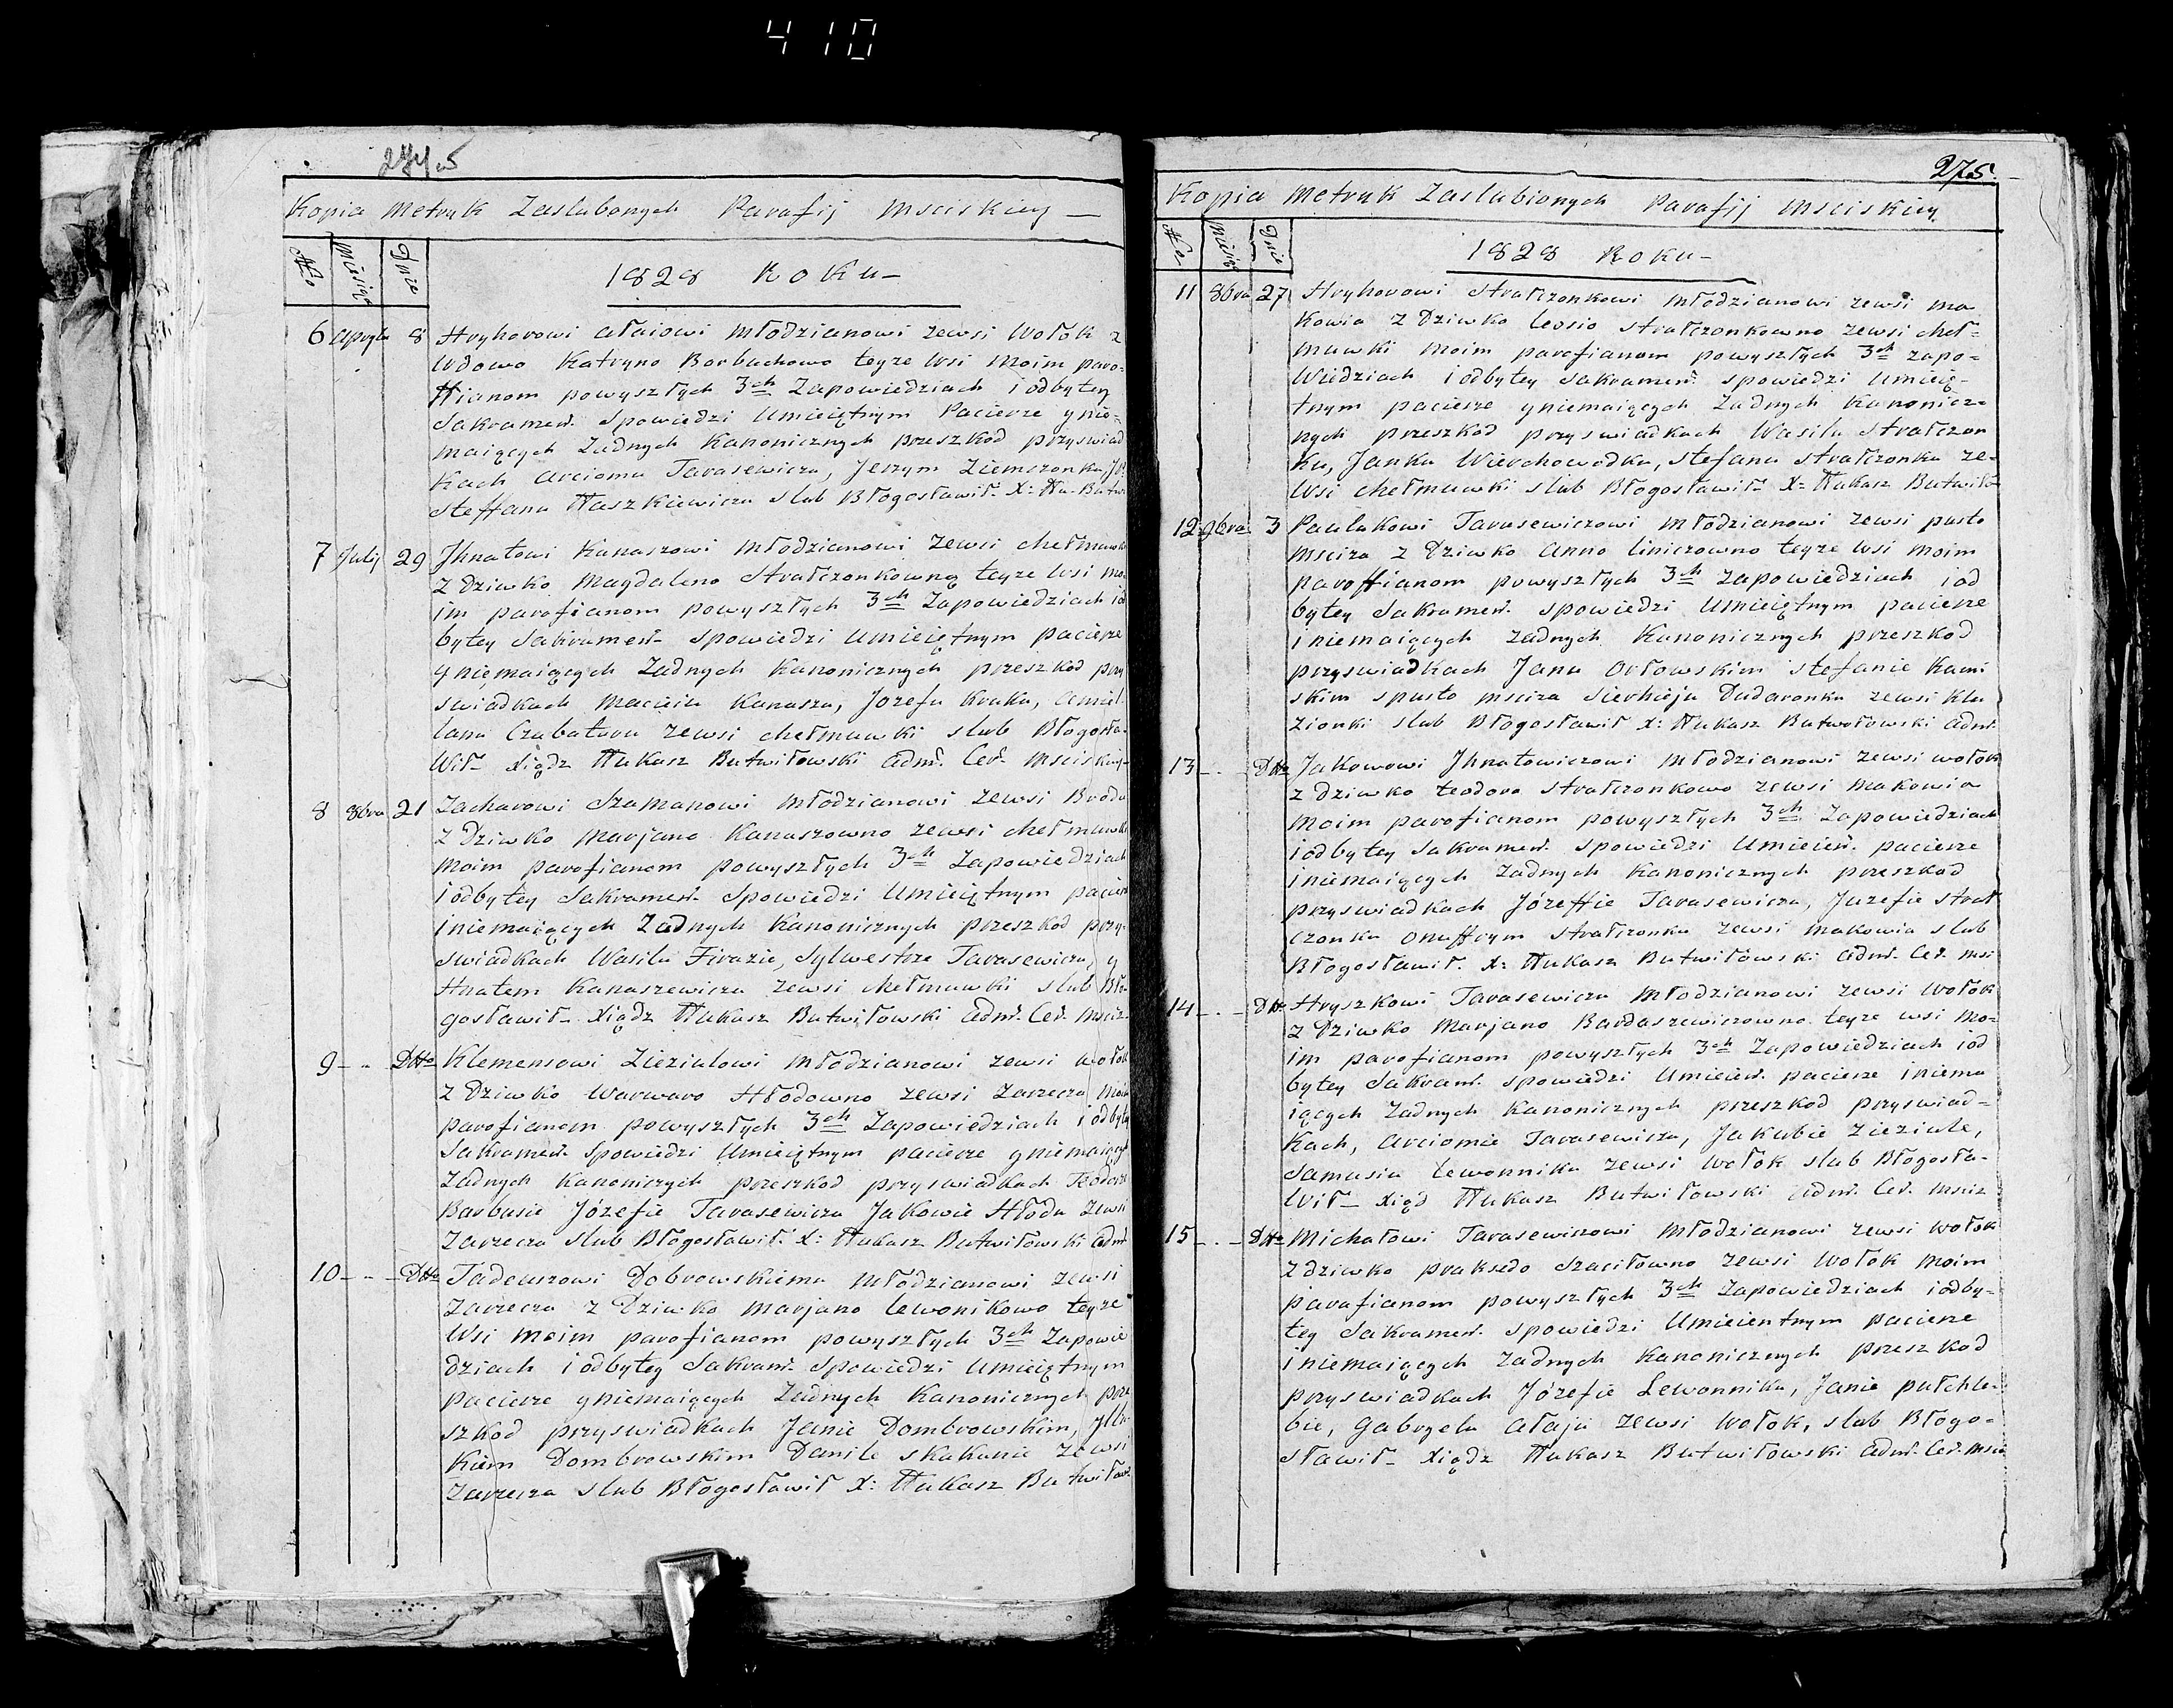 410
Kopia Metryk Zaslubonych Parafij Msciskiey —
No Miesiąc Dnie
1828 Roku –
6 Apryla 8 Hryhorowi Ałaiowi Młodzianowi zewsi Wołok z
Wdowo Katryno Borbuchowo teyze Wsi Moim paro=
ffianom powyszłych 3ch Zapowiedziach i odbytey
Sakramen. Spowiedzi Umieiętnym Pacierze y nie=
maiących Zadnych Kanonicznych przeszkod przyswiad
Kach Arcioma Tarasewicza, Jeszym Ziemczonku,
Steffana Haszkiewicza slub Błogosławił X:
7 Julij 29 Jhnatowi Kanaszowi Młodzianowi Zewsi chełmuwk
Z Dziwko Magdaleno Strałczonkowną teyze Wsi mo
im parofianom powyszłych 3ch Zapowiedziach iod
bytey Sakramen- Spowiedzi Umieiętnym pacierze
y niemaiących Zadnych Kanonicznych przeszkod przy
swiadkach Macieia Kanasza, Jozefa Kruka,
lana Czabatara zewsi chełmuwki slub Błogosła-
Wił- Xiądz Łukasz Butwiłowski Adm. Cer. Msciskiey-
8 8bra 21 Zacharowi Szamanowi Młodzianowi Zewsi Brodu
Z Dziwko Marjano Kanaszowno zewsi chełmuwk
Moim parofianom powyszłych 3ch Zapowiedziach
i odbytey Sakramen- Spowiedzi Umieiętnym pacierz
i niemaiących Zadnych Kanonicznych przeszkod przy-
swiadkach Wasilu Firazie, Sylwestrze Tarasewiczu, y
Hnatem Kanaszewicza zewsi chełmuwki slub Bło-
gosławił- Xiądz Łukasz Butwiłowski Adm. Cer. Msciz-
9 - - Dtto Klemensowi Ziezialowi Młodzianowi zewsi wołok
Z Dziwko Warwaro Hłodowno zewsi Zarzecza Moim
parofianom powyszłych 3ch Zapowiedziach i odbytey
Sakramen- Spowiedzi Umieiętnym pacierze y niemaiący
Zadnych Kanonicznych przeszkod przyswiadkach Teodorze
Barbusie Józefie Tarasewicza Jakowie Hłodu Zewsi
Zarzecza slub Błogosławił: X: Łukasz Butwiłowski Adm
10 - - - Dtto Tadeuszowi Dobrowskiemu Młodzianowi zewsi
Zarzecza z Dziwko Marjano lewonikowo teyze
Wsi Moim parofianom powyszłych 3ch Zapowie
dziach i odbytey Sakram. Spowiedzi Umieiętnym
pacierze y niemaiących Zadnych Kanonicznych prze
szkod przyswiadkach Janie Dombrowskim,
Kiem Dombrowskim Danile skakunie zewsi
Zarzecza slub Błogosławił X: Łukasz Butwiłows
275
Kopia Metryk Zaslubionych Parafij Msciskiey
No Miesiąc Dnie
1828 Roku –
11 8bra 27 Hryhorowi Strałczonkowi Młodzianowi zewsi Ma
kowia Z Dziwko leosio Strałczonkowno zewsi cheł=
muwki Moim parofianom powyszłych 3ch zapo=
Wiedziach i odbytey Sakramen. spowiedzi Umieię-
tnym pacierze y niemaiących Zadnych Kanonicz=
nych przeszkod przyswiadkach Wasilu Strałczon
ku, Janku Wierchowodka, Stefanu Strałczonku ze-
Wsi chełmuwki slub Błogosławił- X= Łukasz Butwiło
12 9bra 3 Paulukowi Tarasewiczowi Młodzianowi zewsi pusto
Msciza z Dziwko Anno liniczowno teyze Wsi Moim
paroffianom powyszłych 3ch Zapowiedziach i od
bytey Sakramen. spowiedzi Umieiętnym pacierze
i niemaiących Zadnych Kanonicznych przeszkod
przyswiadkach Janu Orłowskim Stefanie Kami
skim spusto Msciza Sierhieju Dudaronku zewsi Klu
zionki slub Błogosławił X: Łukasz Butwołowski Adm.
13 - - - Dtto Jakowowi Jhnatowiczowi Młodzianowi zewsi wołok
z dziwko teodoro Strałczonkowo zewsi Makowia
Moim parofianom powyszłych 3ch Zapowiedziach
i odbytey Sakramen. spowiedzi Umieien. pacierze
i niemaiących Zadnych Kanonicznych przeszkod
przyswiadkach Józeffie Tarasewicza, Juzefie Strał
czonku Onuffrym Strałczonku zewsi Makowia slub
Błogosławił. X: Łukasz Butwiłowski Adm. Cer. Msi
14 - - - Dtto Hryszkowi Tarasewiczu Młodzianowi zewsi wołok
z Dziwko Marjano Bardaszewiczowno teyze wsi Mo=
im parofianom powyszłych 3ch Zapowiedziach i od
bytey Sakram. spowiedzi Umieien. pacierze i niema
iących Zadnych Kanonicznych przeszkod przyswiad=
kach, Arciomie Tarasewicza, Jakubie Zieziule,
Samusia lewonnika zewsi wołok slub Błogosła-
Wił- Xiąd Łukasz Butwiłowski Adm. Cer. Msciz
15 - - - Dtto Michałowi Tarasewiczowi Młodzianowi zewsi wołok
Zdziwko praksedo Szaciłowno zewsi Wołok Moim
parafianom powyszłych 3ch Zapowiedziach i odby-
tey Sakramen. spowiedzi Umieientnym pacierze
i niemaiących Zadnych Kanonicznych przeszkod
przyswiadkach Józefie Lewonnika, Janie putchle-
bie, Gabryelu Ałaju zewsi Wołok, slub Błogo-
sławił- Xiądz Łukasz Butwiłowski Adm. Cer. Msci